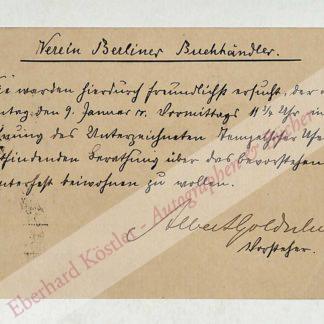 Verein Berliner Buchhändler.
Sie werden hierdurch freundlichst ersucht, der am
ntag, den 9. Januar cr. Vormittags 11 1/2 Uhr in
nung des Unterzeichneten Tempelhofer Ufer
tfindenden Berathung über das bevorstehende
interfest beiwohnen zu wollen.
Albert Goldschmi
Vorsteher.
Eberhard Köstler - Autographen & Bücher